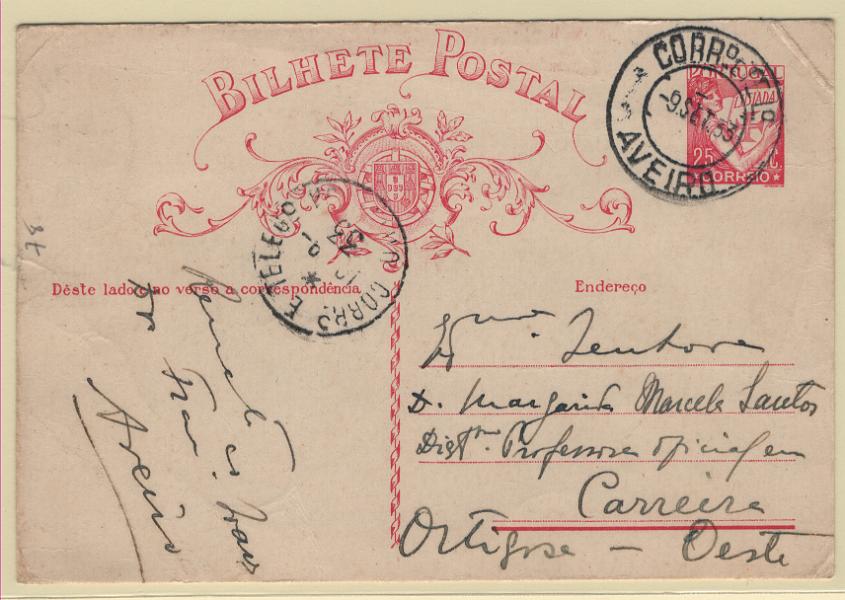 BILHETE POSTAL
CORRO E
AVEIRO
-9.SET.33
25 C.
CORREIO
CORRO E TELEGO
Dêste lado e no verso a correspondência
Endereço
Exma. Senhora
D. Margarida Marcela Santos
Digma. Professora Oficial em
Carreira
Ortigosa — Oeste
Aveiro